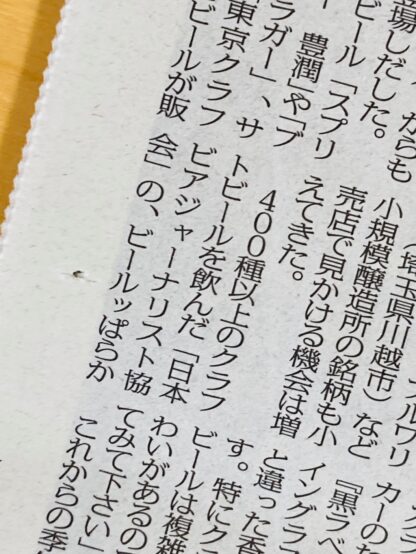 からも
場しだした。
ビール「スプリ
豊潤」や「ブ
ラガー」、サ
「東京クラフ
ビールが販
ブルワリ
埼玉県川越市）など
小規模醸造所の銘柄も小
売店で見かける機会は増
えてきた。
400種以上のクラフ
トビールを飲んだ「日本
ビアジャーナリスト協
会」の、ビールッぱらか
カーの
『黒ラベ
イングラ
と違った香
す。特にク
ビールは複雑
わいがあるの
てみて下さい」
これからの季